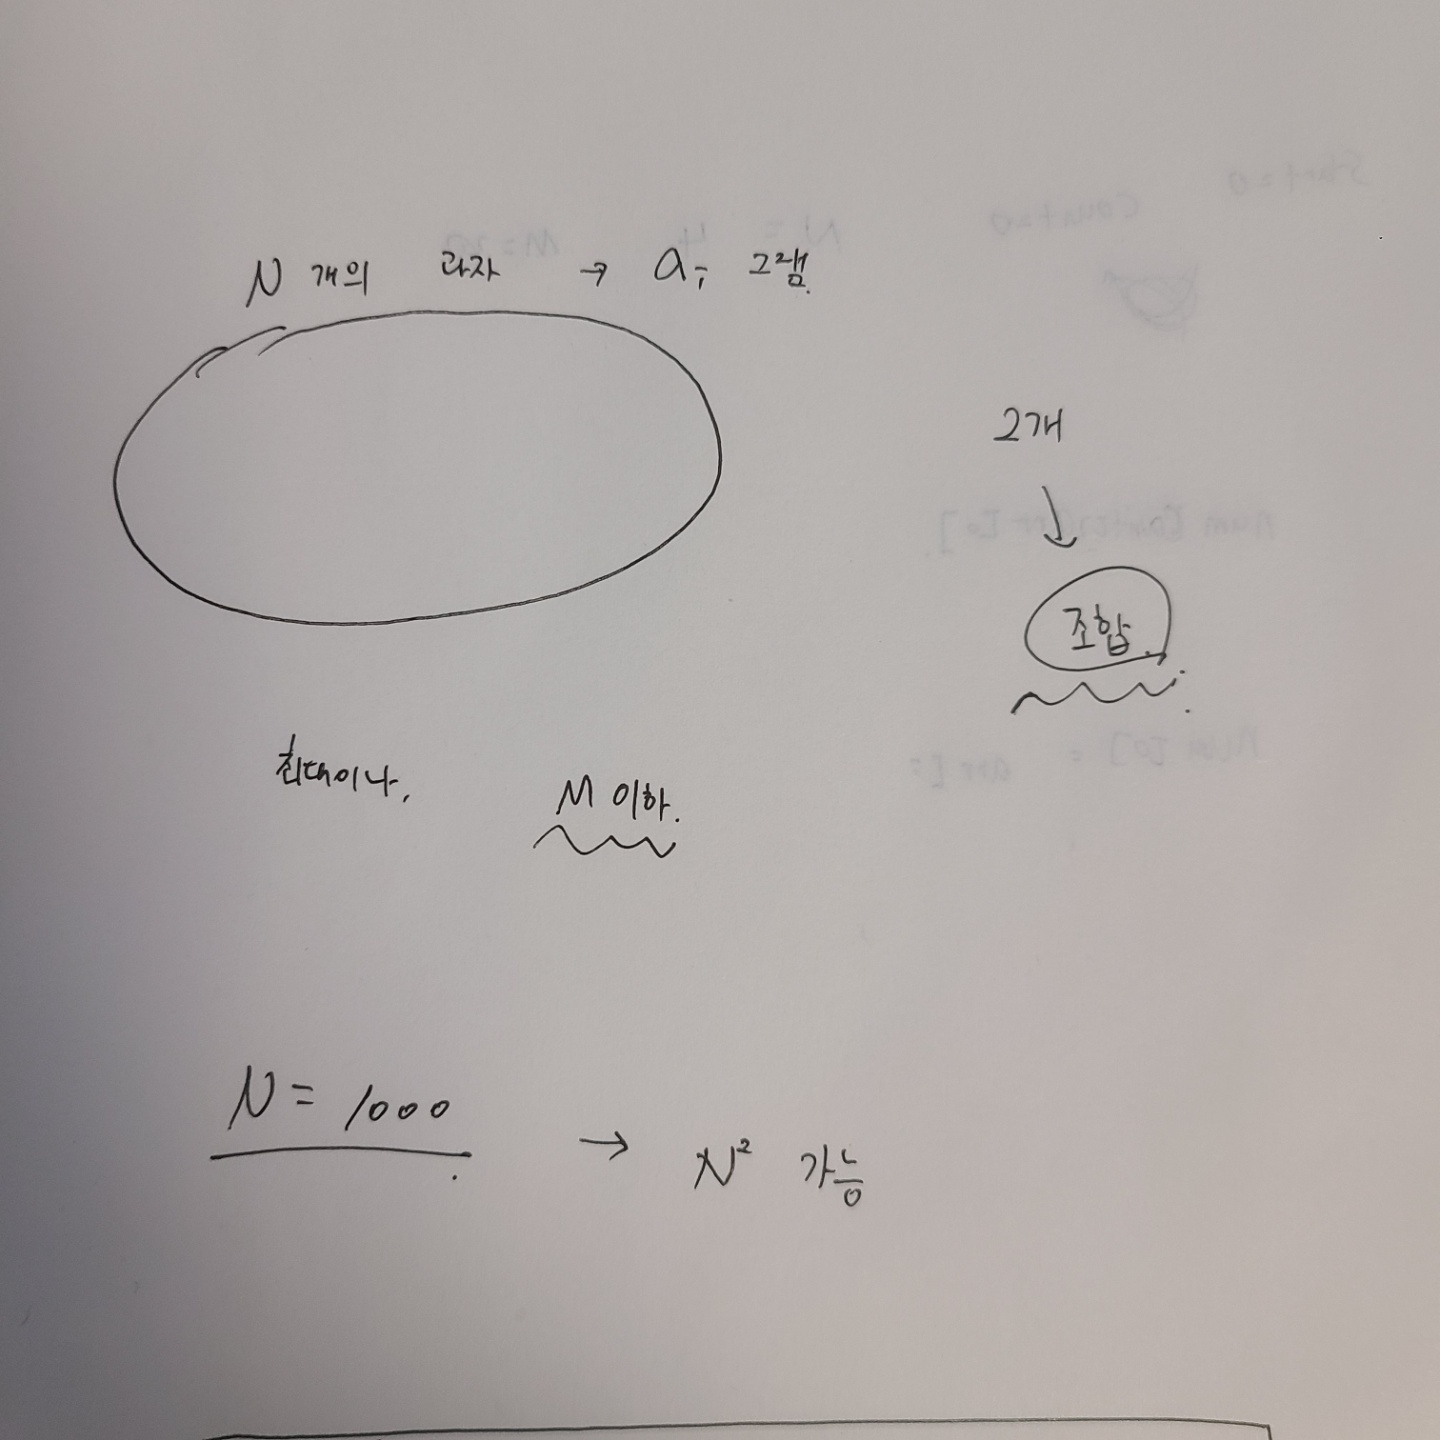 N 개의 과자 → ai 그램.
2개
↓
조합.
최대이나,
M 이하.
N = 1000
→ N² 가능